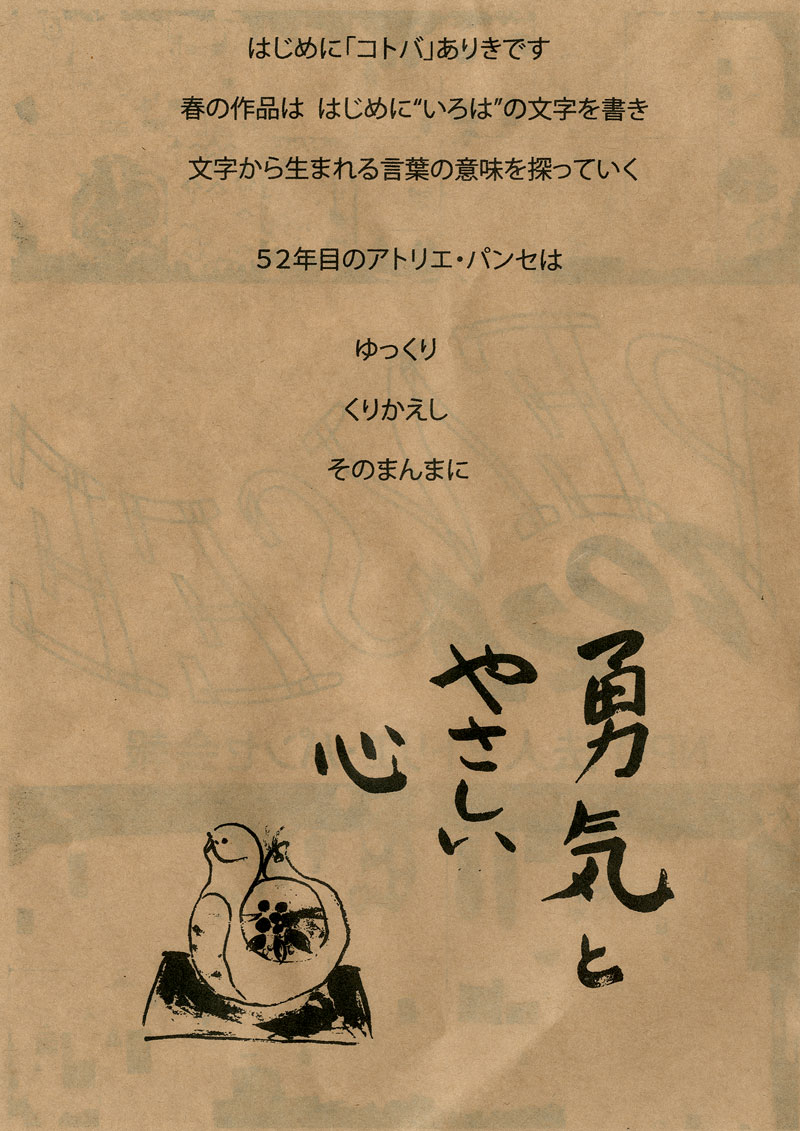 はじめに「コトバ」ありきです
春の作品は はじめに“いろは”の文字を書き
文字から生まれる言葉の意味を探っていく
５２年目のアトリエ・パンセは
ゆっくり
くりかえし
そのまんまに
勇気と
やさしい
心